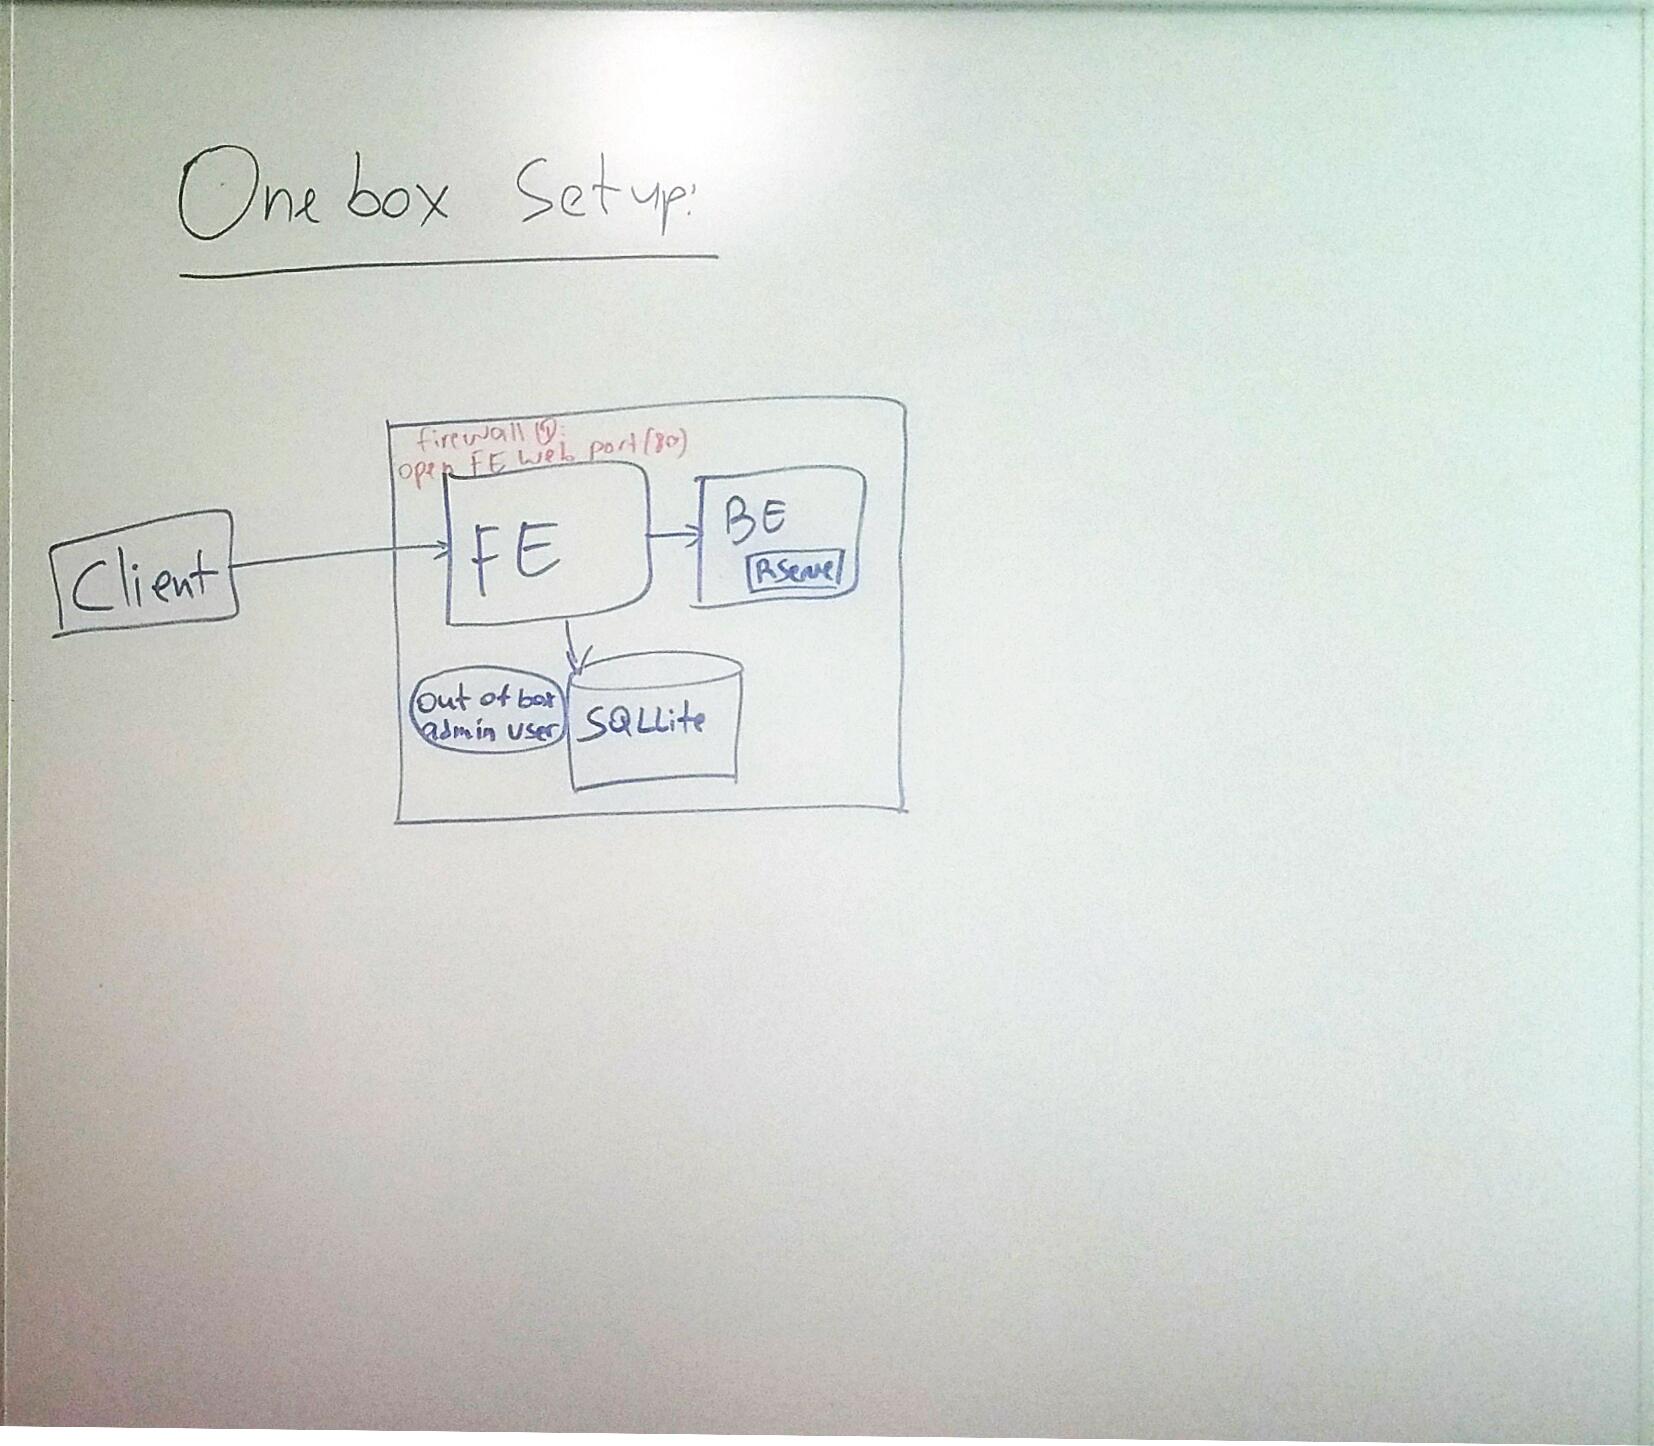 One box Setup:
firewall ①:
open FE web port (80)
Client
FE
BE
RServe
Out of box
admin user
SQLLite